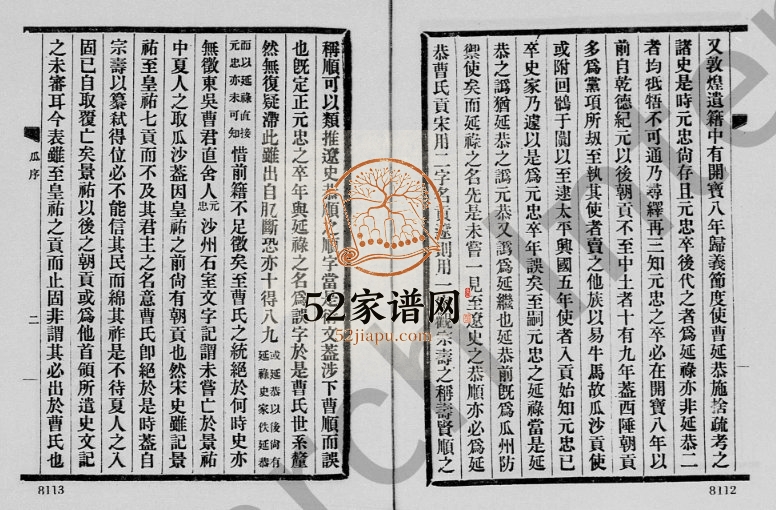 又敦煌遺籍中有開寶八年歸義節度使曹延恭施捨疏考之
諸史是時元忠尙存且元忠卒後代之者爲延祿亦非延恭二
者均牴牾不可通乃尋繹再三知元忠之卒必在開寶八年以
前自乾德紀元以後朝貢不至中土者十有九年葢西陲朝貢
多爲黨項所刼至執其使者賣之他族以易牛馬故瓜沙貢使
或附回鶻于闐以至逮太平興國五年使者入貢始知元忠已
卒史家乃遽以是爲元忠卒年誤矣至嗣元忠之延祿當是延
恭之譌猶延恭之譌元恭又譌爲延繼也延恭前旣爲瓜州防
禦使矣而延祿之名先是未嘗一見至遼史之恭順亦必爲延
恭曹氏貢宋用二字名貢遼則用一觀宗壽之稱壽賢順之
8112
稱順可以類推遼史恭順之順字當文葢涉下曹順而誤
也旣定正元忠之卒年與延祿之名爲誤字於是曹氏世系釐
然無復疑滯此雖出自肊斷恐亦十得八九或延恭以後尙有延祿史家佚延恭
而以延祿直接元忠亦未可知惜前籍不足徵矣至曹氏之統絕於何時史亦
無徵東吳曹君直舍人元忠沙州石室文字記謂未嘗亡於景祐
中夏人之取瓜沙葢因皇祐之前尙有朝貢也然宋史雖記景
祐至皇祐七貢而不及其君主之名意曹氏卽絕於是時葢自
宗壽以簒弒得位必不能信其民而綿其祚是不待夏人之入
固已自取覆亡矣景祐以後之朝貢或爲他首領所遣史文記
之未審耳今表雖至皇祐之貢而止固非謂其必出於曹氏也
瓜序
二
8113
52家谱网
52jiapu.com